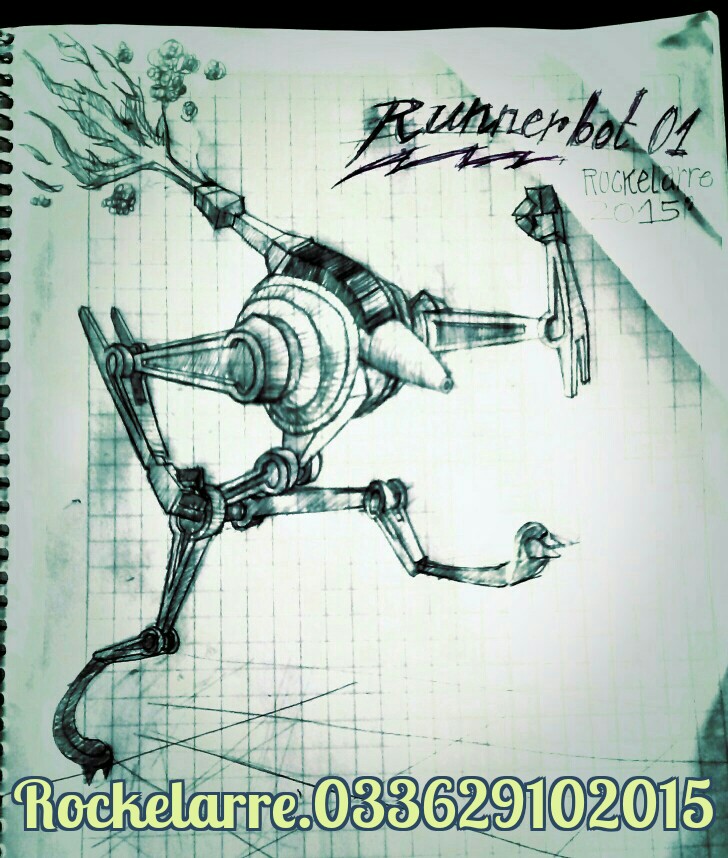 Runnerbot 01
Rockelarre
2015
Rockelarre.033629102015